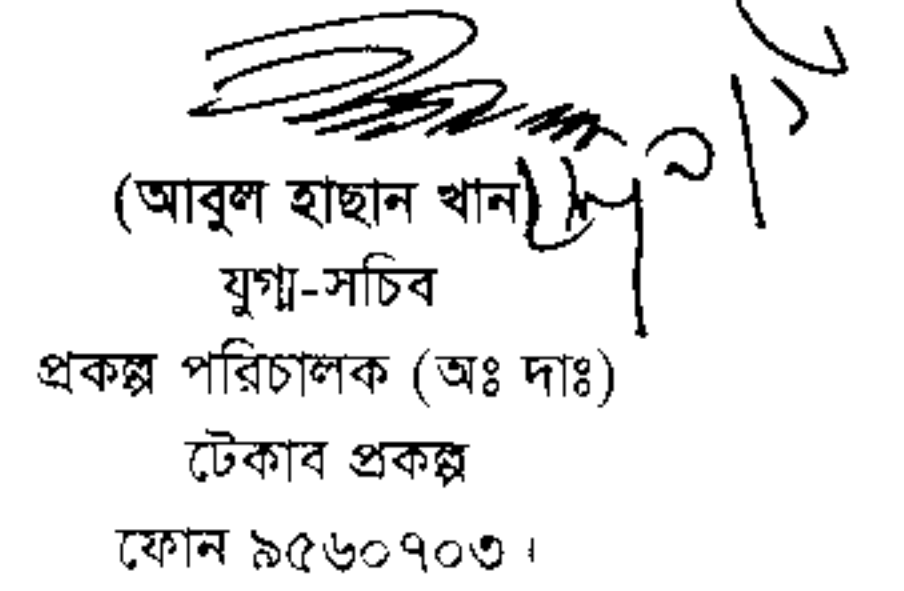 (আবুল হাছান খান)
যুগ্ম-সচিব
প্রকল্প পরিচালক (অঃ দাঃ)
টেকাব প্রকল্প
ফোন ৯৫৬০৭০৩।